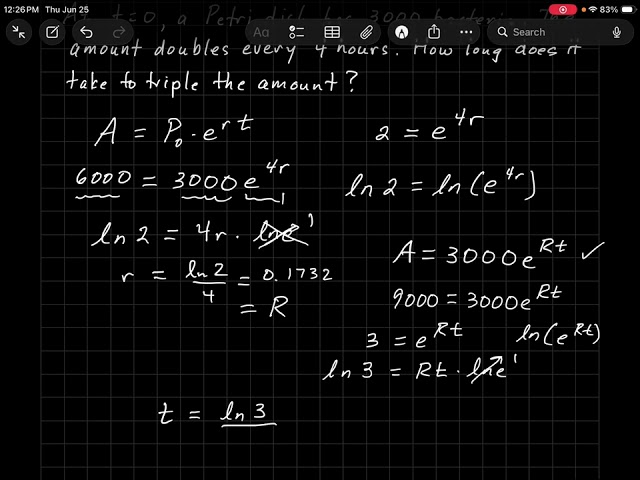 12:26 PM Thu Jun 25
83%
Aa
Search
t=0, a Petri dish has 3000
amount doubles every 4 hours. How long does it
take to triple the amount?
A = P₀ · e^{rt}
6000 = 3000 e^{4r}
ln 2 = 4r · ln e 1
r = ln 2 / 4 = 0.1732
= R
2 = e^{4r}
ln 2 = ln(e^{4r})
A = 3000 e^{Rt} ✓
9000 = 3000 e^{Rt}
3 = e^{Rt} ln(e^{Rt})
ln 3 = Rt · ln e 1
t = ln 3